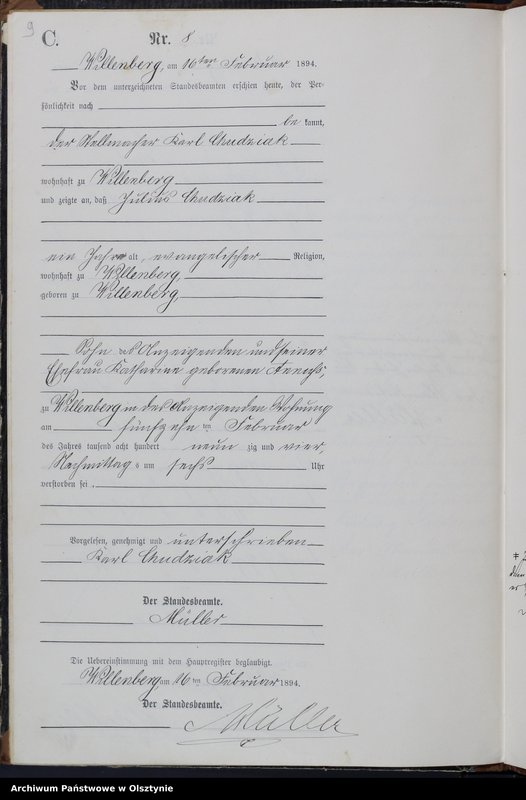 9
C. Nr. 8
Willenberg, am 16ten Februar 1894.
Vor dem unterzeichneten Standesbeamten erschien heute, der Per-
sönlichkeit nach
be kannt,
der Stellmacher Karl Chudziak
wohnhaft zu Willenberg
und zeigte an, daß Julius Chudziak
ein Jahr alt, evangelischer Religion,
wohnhaft zu Willenberg,
geboren zu Willenberg,
Sohn des Anzeigenden und seiner
Ehefrau Katharine geborenen
zu Willenberg in des Anzeigenden Wohnung
am fünfzehn ten Februar
des Jahres tausend acht hundert neun zig und vier,
Nachmittag s um sechs Uhr
verstorben sei.
Vorgelesen, genehmigt und unterschrieben
Karl Chudziak
Der Standesbeamte.
Müller
Die Uebereinstimmung mit dem Hauptregister beglaubigt.
Willenberg, am 16 ten Februar 1894.
Der Standesbeamte.
Müller
Archiwum Państwowe w Olsztynie